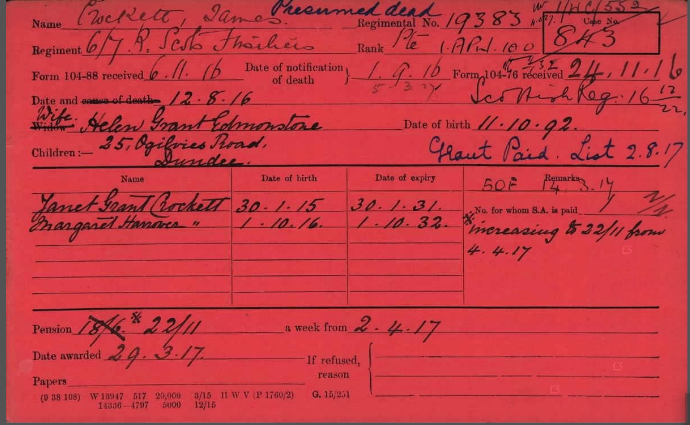 Presumed dead
Name Crockett, James. Regimental No. 19383 Case No. 843
Regiment 6/7 R. Scots Fusiliers Rank Pte
Form 104-88 received 6.11.16 Date of notification of death } 1.9.16 Form 104-76 received 24.11.16
Date and cause of death 12.8.16 Scottish Reg. 16
Wife
Widow Helen Grant Edmonstone Date of birth 11.10.92.
Children:— 25, Ogilvies Road, Grant Paid. List 2.8.17
Dundee.
Name Date of birth Date of expiry Remarks
SOF 14.3.17
Janet Grant Crockett 30.1.15 30.1.31. No. for whom S.A. is paid 1
Margaret Hanover " 1.10.16. 1.10.32. * increasing to 22/11 from
4.4.17
Pension 18/6. * 22/11 a week from 2.4.17
Date awarded 29.3.17. If refused, reason
Papers
(9 38 108) W 13947 517 20,000 3/15 H W V (P 1760/2) G. 15/251
14336—4797 5000 12/15